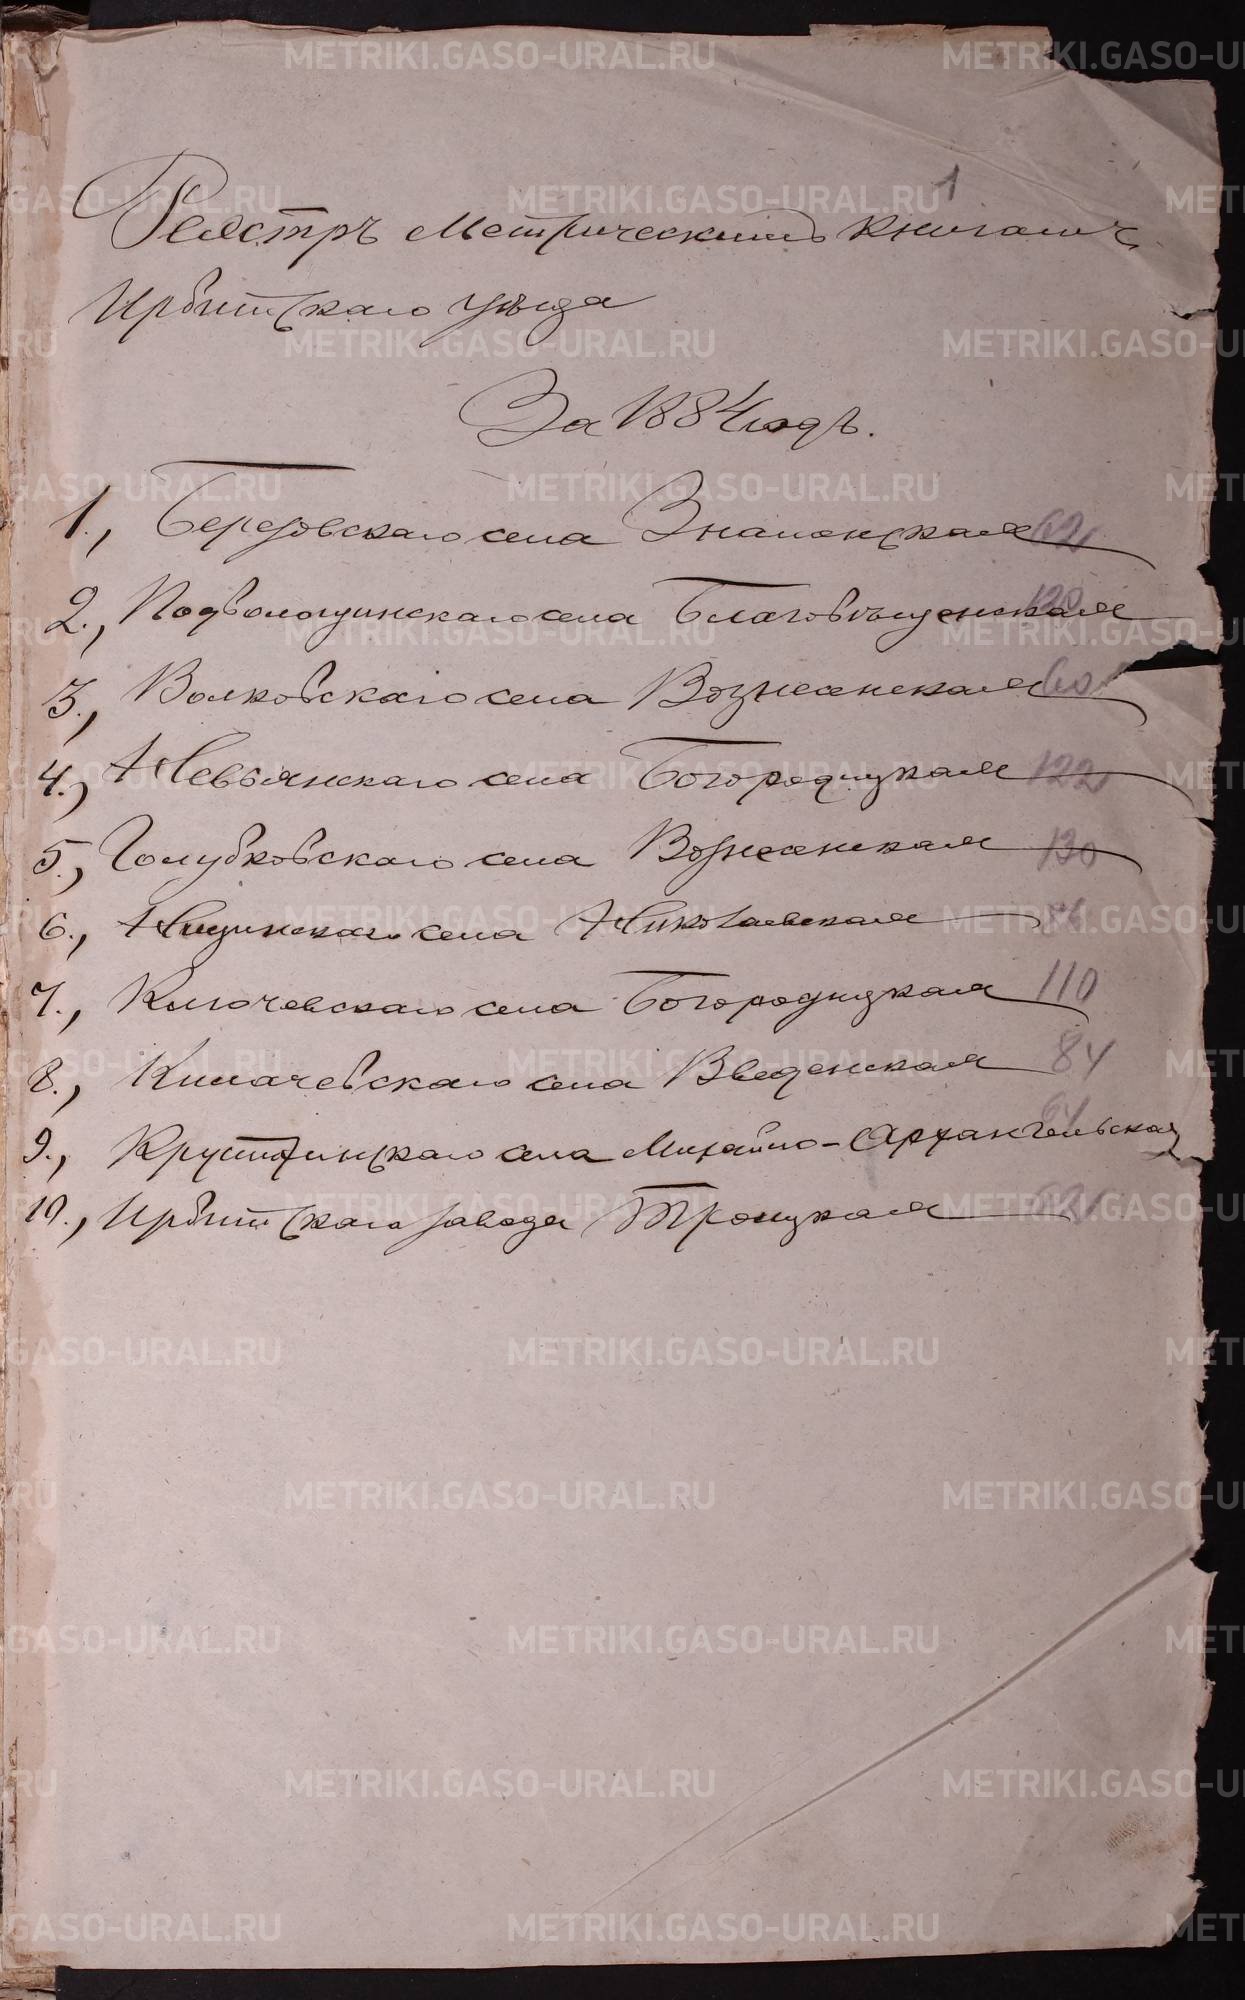 1
Реестръ Метрическимъ книгамъ
Ирбитскаго уѣзда
За 1884 годъ.
1., Березовскаго села Знаменская
2., Подволошинскаго села Благовѣщенская 120
3., Волковскаго села Вознесенская 60
4.) Невьянскаго села Богородицкая 122
5., Голубковскаго села Вознесенская 130
6., Ницинскаго села Николаевская
7., Ключевскаго села Богородицкая 110
8., Килачевскаго села Введенская 84
9., села Михайло-Архангельская 64
10., Ирбитскаго завода Троицкая
METRIKI.GASO-URAL.RU